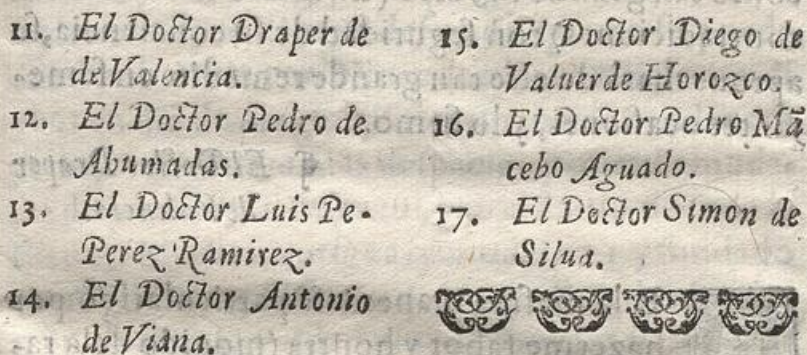 11. El Doctor Draper de
de Valencia.
12. El Doctor Pedro de
Ahumadas.
13. El Doctor Luis Pe-
Perez Ramirez.
14. El Doctor Antonio
de Viana.
15. El Doctor Diego de
Valuerde Horozco.
16. El Doctor Pedro Mã
cebo Aguado.
17. El Doctor Simon de
Silua.